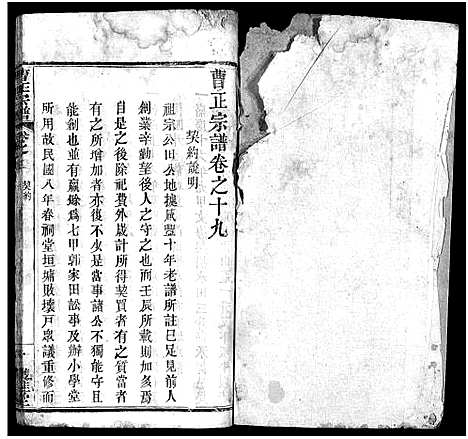 曹正宗譜卷之十九
契約說明
祖宗公田公地據咸豐十年老譜所註已足見前人
創業辛勤望後人之守之也而壬辰所載則加多焉
良之後除祀費外歲計所得契買者有之質當者
有之所增加者亦復不少是當事諸公不獨能守且
能創也並有贏餘爲七甲郭家田訟事及辦小學堂
所用故民國八年春祠堂垣墉敗壞戶眾議重修而
曹正宗譜
契約